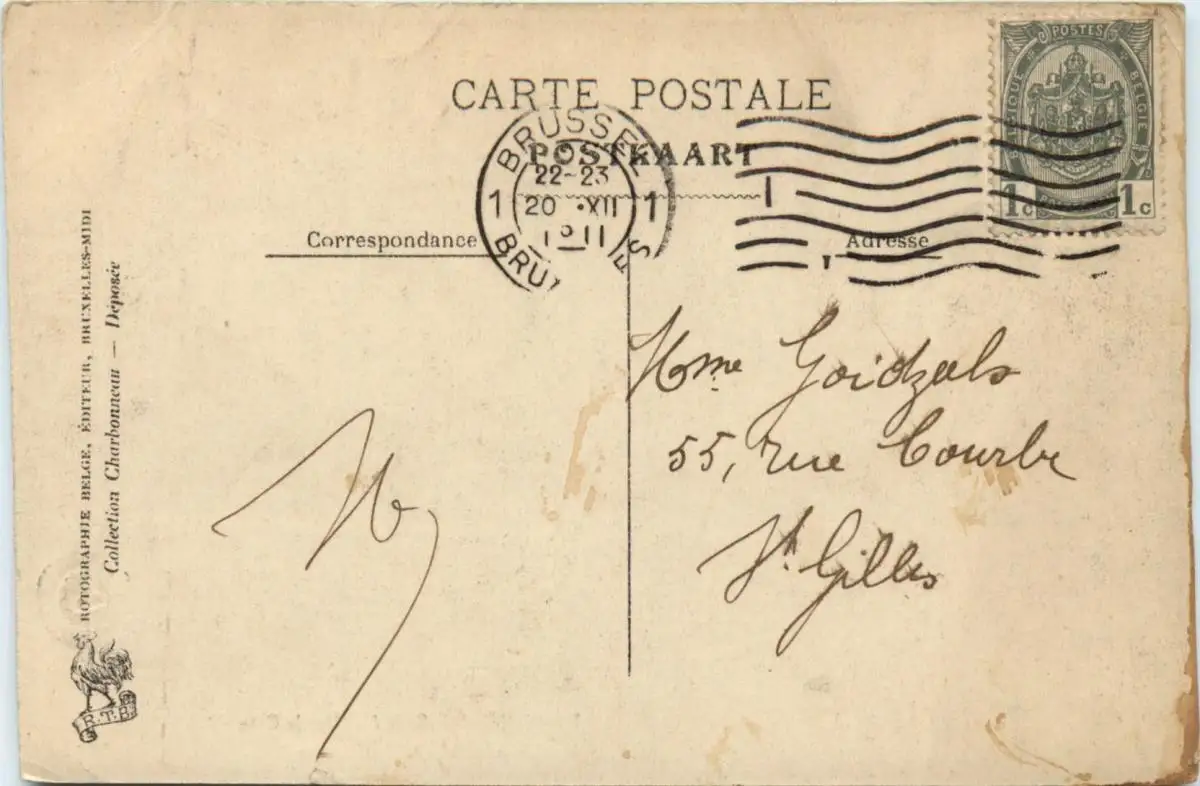 CARTE POSTALE
POSTKAART
BRUSSEL
22-23
1 20 XII 1
1911
BRU ES
POSTES
BELGIQUE BELGIE
1c 1c
Correspondance
Adresse
ROTOGRAPHIE BELGE, ÉDITEUR, BRUXELLES-MIDI
Collection Charbonneau — Déposée
R.T.B.
Mme Goidzals
55, rue Courbe
St. Gilles